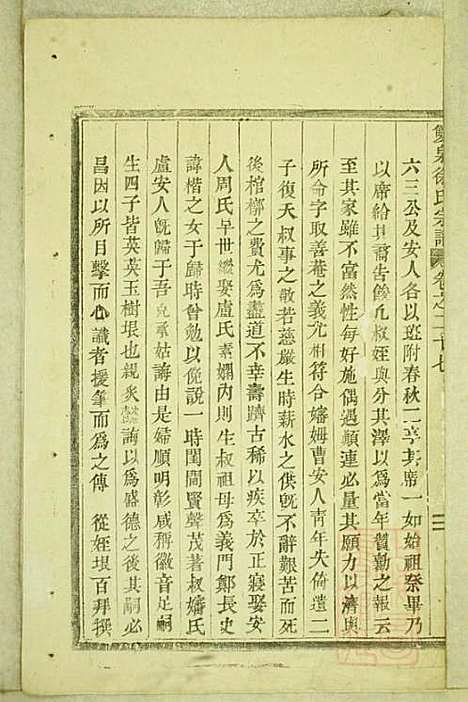 雙泉徐氏宗譜 卷之一百七
六三公及安人各以班附春秋二享其席一如始祖祭畢乃
以席給其裔告餕凡叔姪與分其澤以為當年賢勤之報云
至其家雖不富然性每好施偶遇顛連必量其願力以濟與
所命字取善菴之義尤相符合嬸姆曹安人青年失倚遺二
子復天叔事之敬若慈嚴生時薪水之供旣不辭艱苦而死
後棺槨之費尤為盡道不幸壽躋古稀以疾卒於正寢娶安
人周氏早世繼娶盧氏素嫻內則生叔祖母為義門鄭長史
諱楷之女于歸時曾勉以俛說一時閨閫賢聲茂著叔嬸氏
盧安人旣歸于吾克承姑誨由是婦順明彰咸稱徽音足嗣
生四子皆英英玉樹垠也親炙懿誨以為盛德之後其嗣必
昌因以所目擊而心識者援筆而為之傳 從姪垠百拜撰